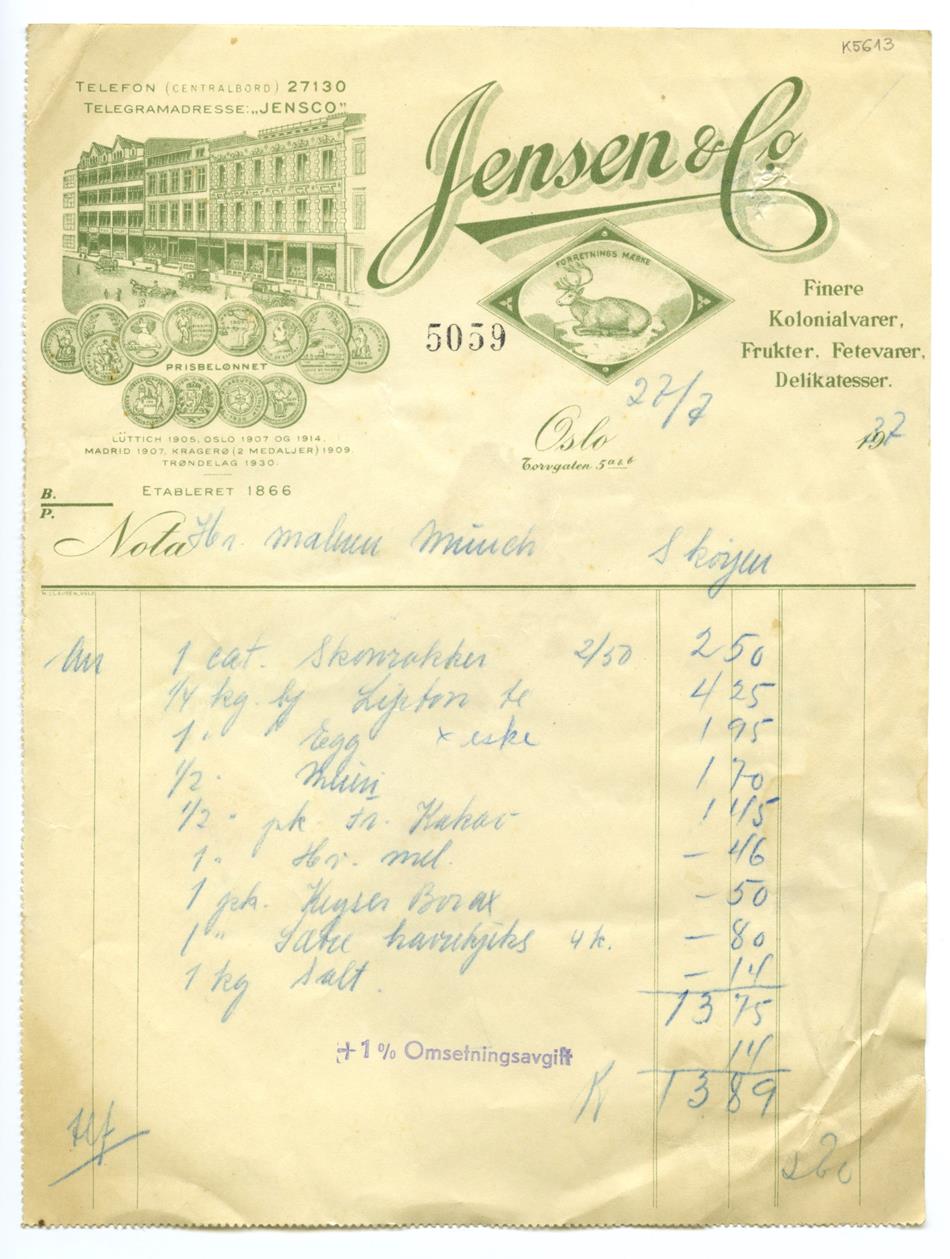 K5613
TELEFON (CENTRALBORD) 27130
TELEGRAMADRESSE: „JENSCO"
Jensen & Co
FORRETNINGS MÆRKE
5059
Finere
Kolonialvarer,
Frukter, Fetevarer,
Delikatesser.
PRISBELØNNET
LÜTTICH 1905, OSLO 1907 OG 1914,
MADRID 1907, KRAGERØ (2 MEDALJER) 1909,
TRØNDELAG 1930.
ETABLERET 1866
27/7
Oslo 1937
Torvgaten 5 a & b
B.
P.
Nota Hr. maleren Munch Skøyen
An 1 cat. Skonrokker 2/50 2 50
1/4 kg. Lipton te 4 25
1 " Egg x eske 1 95
1/2 " 1 70
1/2 " pk. Fr. Kakao 1 45
1 " Hv. mel. - 46
1 pk. Keyser Borax - 50
1 " Sætre havrekjeks 4 k. - 80
1 kg Salt. - 14
13 75
+ 1% Omsetningsavgift 14
K 13 89